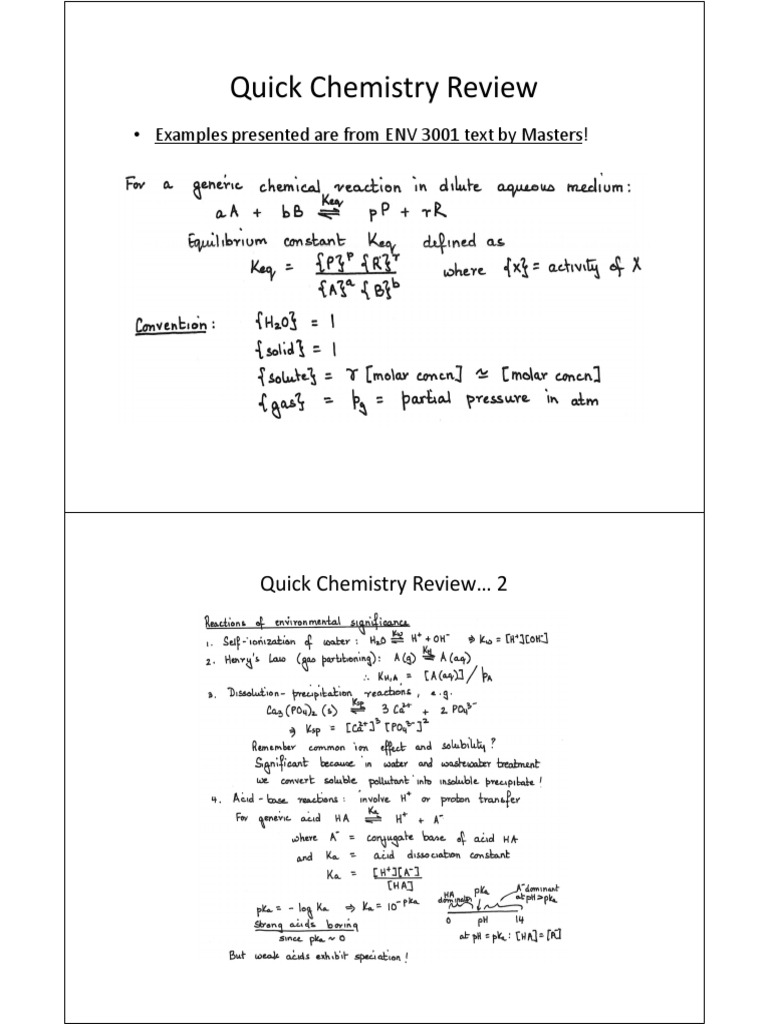 Quick Chemistry Review
• Examples presented are from ENV 3001 text by Masters!
For a generic chemical reaction in dilute aqueous medium:
aA + bB ⇌ pP + rR
Keq
Equilibrium constant Keq defined as
Keq = {P}^p {R}^r / {A}^a {B}^b where {x} = activity of X
Convention: {H₂O} = 1
{solid} = 1
{solute} = γ [molar concn] ≃ [molar concn]
{gas} = pg = partial pressure in atm
Quick Chemistry Review... 2
Reactions of environmental significance
1. Self-ionization of water: H₂O ⇌ H⁺ + OH⁻ ⇒ Kw = [H⁺][OH⁻]
Kw
2. Henry's Law (gas partitioning): A(g) ⇌ A(aq)
KH
∴ KH,A = [A(aq)] / pA
3. Dissolution-precipitation reactions, e.g.
Ca₃(PO₄)₂(s) ⇌ 3 Ca²⁺ + 2 PO₄³⁻
Ksp
⇒ Ksp = [Ca²⁺]³ [PO₄³⁻]²
Remember common ion effect and solubility?
Significant because in water and wastewater treatment
we convert soluble pollutant into insoluble precipitate!
4. Acid-base reactions: involve H⁺ or proton transfer
For generic acid HA ⇌ H⁺ + A⁻
Ka
where A⁻ = conjugate base of acid HA
and Ka = acid dissociation constant
Ka = [H⁺][A⁻] / [HA]
pKa = - log Ka ⇒ Ka = 10^-pKa
Strong acids boring
since pKa ~ 0
HA dominates
pKa
A⁻ dominant
at pH>pKa
0 pH 14
at pH = pKa: [HA] = [A⁻]
But weak acids exhibit speciation!